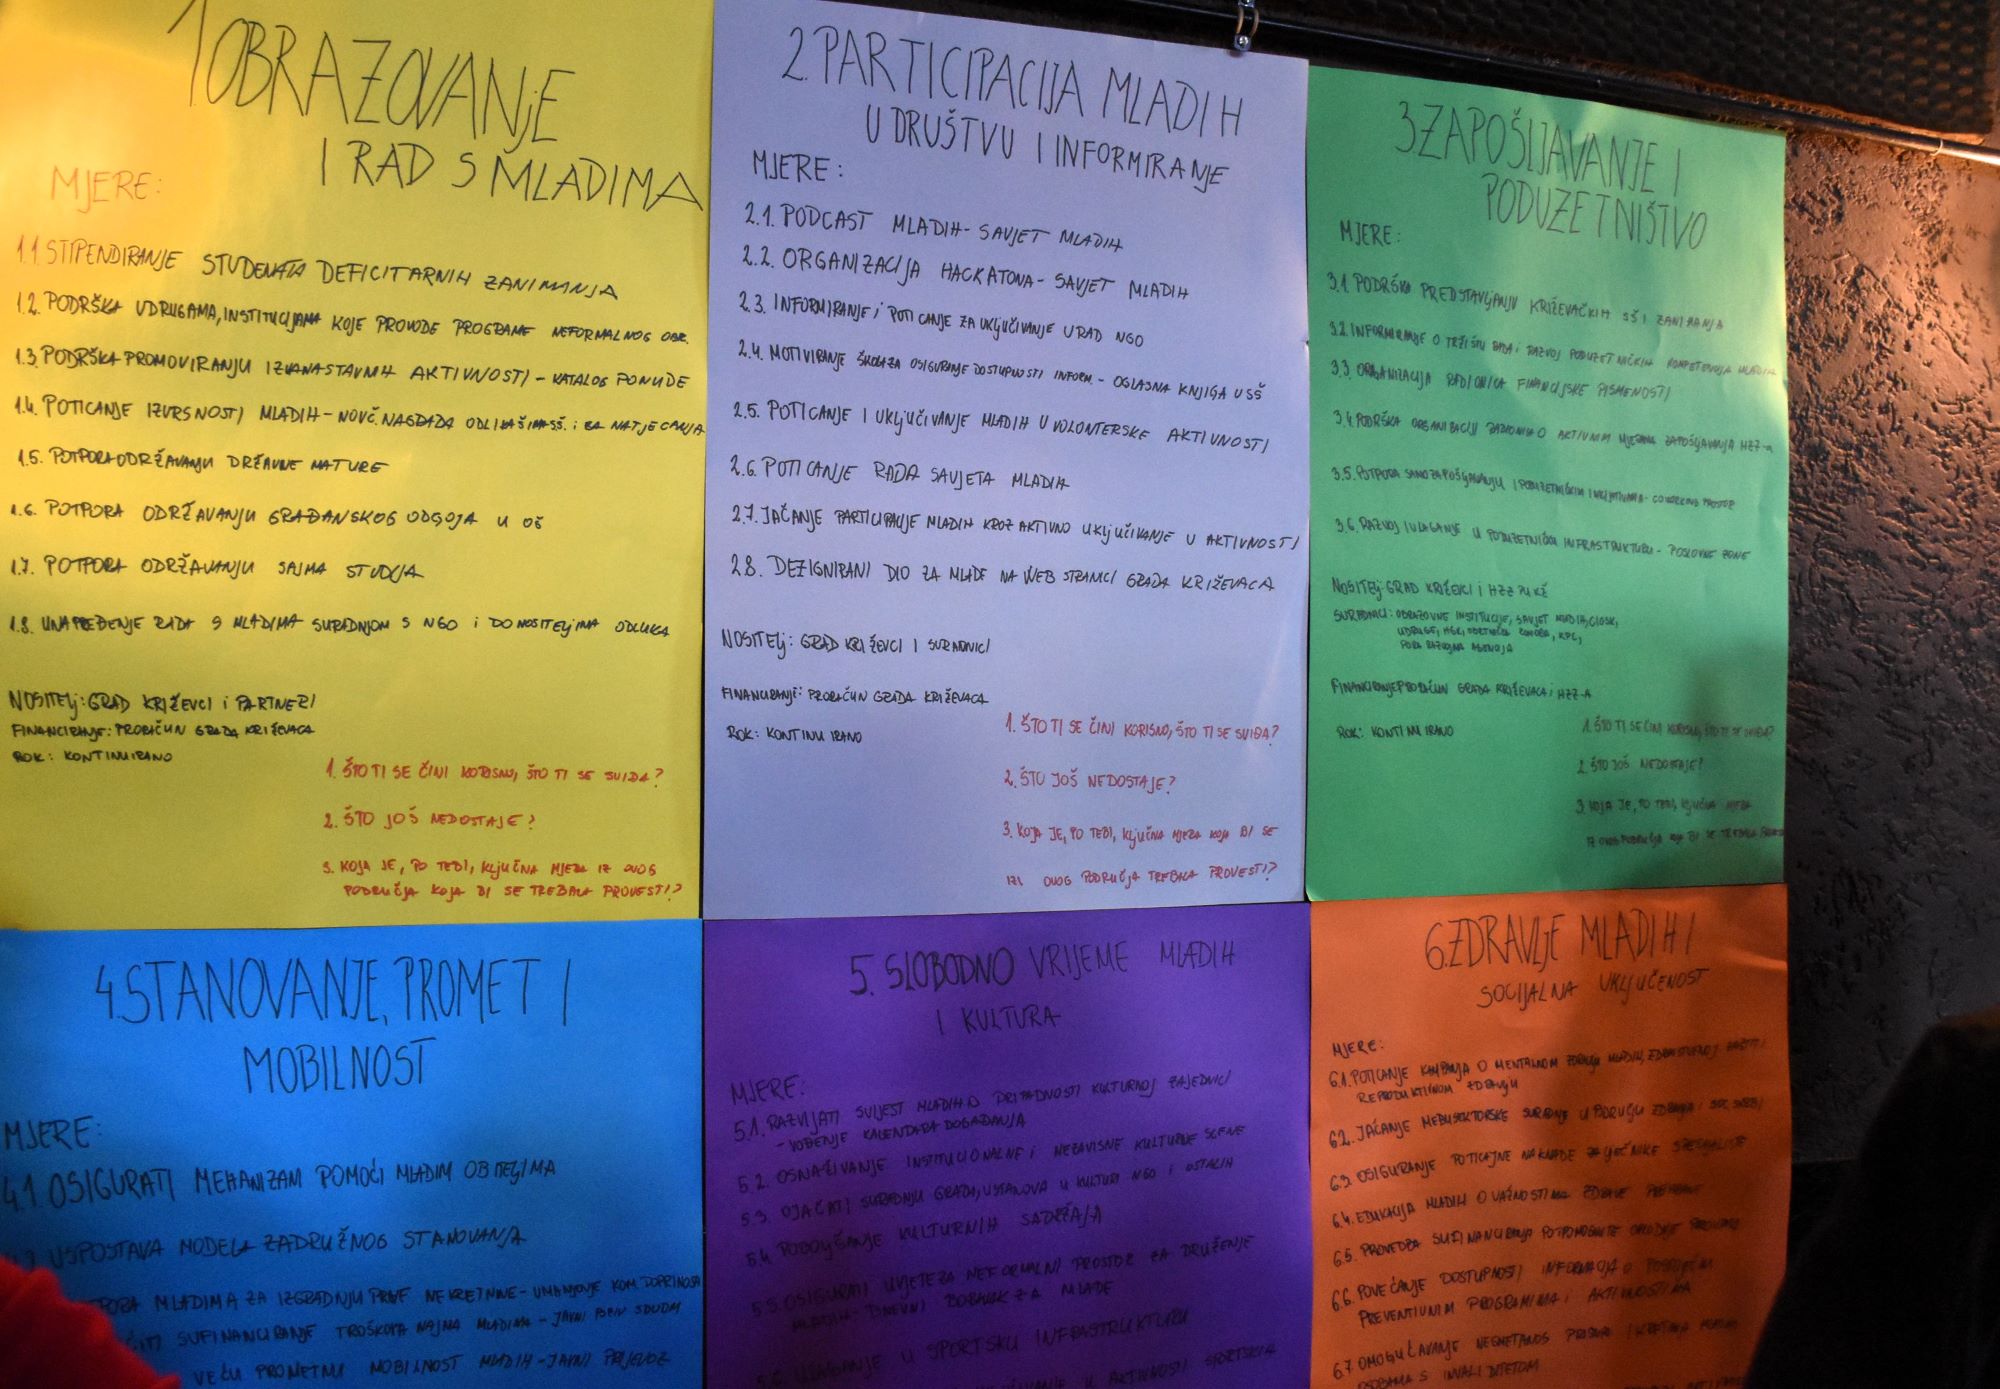 1 OBRAZOVANJE
I RAD S MLADIMA
MJERE:
1.1 STIPENDIRANJE STUDENATA DEFICITARNIH ZANIMANJA
1.2. PODRŠKA UDRUGAMA, INSTITUCIJAMA KOJE PROVODE PROGRAME NEFORMALNOG OBR.
1.3. PODRŠKA PROMOVIRANJU IZVANASTAVNIH AKTIVNOSTI - KATALOG PONUDE
1.4. POTICANJE IZVRSNOSTI MLADIH - NOVČ. NAGRADA ODLIKAŠIMA SŠ. i ZA NATJECANJA
1.5. POTPORA ODRŽAVANJU DRŽAVNE MATURE
1.6. POTPORA ODRŽAVANJU GRAĐANSKOG ODGOJA U OŠ
1.7. POTPORA ODRŽAVANJU SAJMA STUDIJA
1.8. UNAPREĐENJE RADA S MLADIMA SURADNJOM S NGO i DONOSITELJIMA ODLUKA
NOSITELJ: GRAD KRIŽEVCI i PARTNERI
FINANCIRANJE: PRORAČUN GRADA KRIŽEVACA
ROK: KONTINUIRANO
1. ŠTO TI SE ČINI KORISNO, ŠTO TI SE SVIĐA?
2. ŠTO JOŠ NEDOSTAJE?
3. KOJA JE, PO TEBI, KLJUČNA MJERA IZ OVOG
PODRUČJA KOJA BI SE TREBALA PROVESTI?
2. PARTICIPACIJA MLADIH
U DRUŠTVU I INFORMIRANJE
MJERE:
2.1. PODCAST MLADIH - SAVJET MLADIH
2.2. ORGANIZACIJA HACKATONA - SAVJET MLADIH
2.3. INFORMIRANJE i POTICANJE ZA UKLJUČIVANJE U RAD NGO
2.4. MOTIVIRANJE ŠKOLA ZA OSIGURANJE DOSTUPNOSTI INFORM. - OGLASNA KNJIGA U SŠ
2.5. POTICANJE I UKLJUČIVANJE MLADIH U VOLONTERSKE AKTIVNOSTI
2.6. POTICANJE RADA SAVJETA MLADIH
2.7. JAČANJE PARTICIPACIJE MLADIH KROZ AKTIVNO UKLJUČIVANJE U AKTIVNOSTI
2.8. DEZIGNIRANI DIO ZA MLADE NA WEB STRANICI GRADA KRIŽEVACA
NOSITELJ: GRAD KRIŽEVCI I SURADNICI
FINANCIRANJE: PRORAČUN GRADA KRIŽEVACA
ROK: KONTINUIRANO
1. ŠTO TI SE ČINI KORISNO, ŠTO TI SE SVIĐA?
2. ŠTO JOŠ NEDOSTAJE?
3. KOJA JE, PO TEBI, KLJUČNA MJERA KOJA BI SE
IZ OVOG PODRUČJA TREBALA PROVESTI?
3 ZAPOŠLJAVANJE I
PODUZETNIŠTVO
MJERE:
3.1. PODRŠKA PREDSTAVLJANJU KRIŽEVAČKIH SŠ I ZANIMANJA
3.2. INFORMIRANJE O TRŽIŠTU RADA i RAZVOJ PODUZETNIČKIH KOMPETENCIJA MLADIH
3.3. ORGANIZACIJA RADIONICA FINANCIJSKE PISMENOSTI
3.4. PODRŠKA ORGANIZACIJI RADIONICA O AKTIVNIM MJERAMA ZAPOŠLJAVANJA HZZ-a
3.5. POTPORA SAMOZAPOŠLJAVANJU I PODUZETNIČKIM INICIJATIVAMA - COWORKING PROSTOR
3.6. RAZVOJ I ULAGANJE U PODUZETNIČKU INFRASTRUKTURU - POSLOVNE ZONE
NOSITELJ: GRAD KRIŽEVCI i HZZ PU KŽ
SURADNICI: OBRAZOVNE INSTITUCIJE, SAVJET MLADIH, CISOK,
UDRUGE, HGK, OBRTNIČKA KOMORA, KPC,
PORA RAZVOJNA AGENCIJA
FINANCIRANJE: PRORAČUN GRADA KRIŽEVACA i HZZ-A
ROK: KONTINUIRANO
1. ŠTO TI SE ČINI KORISNO, ŠTO TI SE SVIĐA?
2. ŠTO JOŠ NEDOSTAJE?
3. KOJA JE, PO TEBI, KLJUČNA MJERA
IZ OVOG PODRUČJA KOJA BI SE TREBALA
4. STANOVANJE, PROMET I
MOBILNOST
MJERE:
4.1. OSIGURATI MEHANIZAM POMOĆI MLADIM OBITELJIMA
USPOSTAVA MODELA ZADRUŽNOG STANOVANJA
MLADIMA ZA IZGRADNJU PRVE NEKRETNINE - UMANJENJE KOM. DOPRINOSA
SUFINANCIRANJE TROŠKOVA NAJMA MLADIMA - JAVNI
VEĆU PROMETNU MOBILNOST MLADIH - JAVNI PRIJEVOZ
5. SLOBODNO VRIJEME MLADIH
I KULTURA
MJERE:
5.1. RAZVIJATI SVIJEST MLADIH O PRIPADNOSTI KULTURNOJ ZAJEDNICI
- VOĐENJE KALENDARA DOGAĐANJA
5.2. OSNAŽIVANJE INSTITUCIONALNE i NEZAVISNE KULTURNE SCENE
5.3. OJAČATI SURADNJU GRADA, USTANOVA U KULTURI NGO i OSTALIH
5.4. POBOLJŠANJE KULTURNIH SADRŽAJA
5.5. OSIGURATI UVJETE ZA NEFORMALNI PROSTOR ZA DRUŽENJE
MLADIH - DNEVNI BORAVAK ZA MLADE
5.6. ULAGANJE U SPORTSKU INFRASTRUKTURU
U AKTIVNOSTI SPORTSKIH
6. ZDRAVLJE MLADIH I
SOCIJALNA UKLJUČENOST
MJERE:
6.1. POTICANJE KAMPANJA O MENTALNOM ZDRAVLJU MLADIH, ZDRAVSTVENOJ ZAŠTITI
REPRODUKTIVNOM ZDRAVLJU
6.2. JAČANJE MEĐUSEKTORSKE SURADNJE U PODRUČJU ZDRAVLJA i SOC. SKRBI
6.3. OSIGURANJE POTICAJNE NAKNADE ZA LIJEČNIKE SPECIJALISTE
6.4. EDUKACIJA MLADIH O VAŽNOSTIMA ZDRAVE PREHRANE
6.5. PROVEDBA SUFINANCIRANJA POTPOMOGNUTE OPLODNJE
6.6. POVEĆANJE DOSTUPNOSTI INFORMACIJA O
PREVENTIVNIM PROGRAMIMA i AKTIVNOSTIMA
6.7. OMOGUĆAVANJE NESMETANOG PRISTUPA I KRETANJA
OSOBAMA S INVALIDITETOM